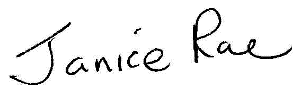 Janice Rae